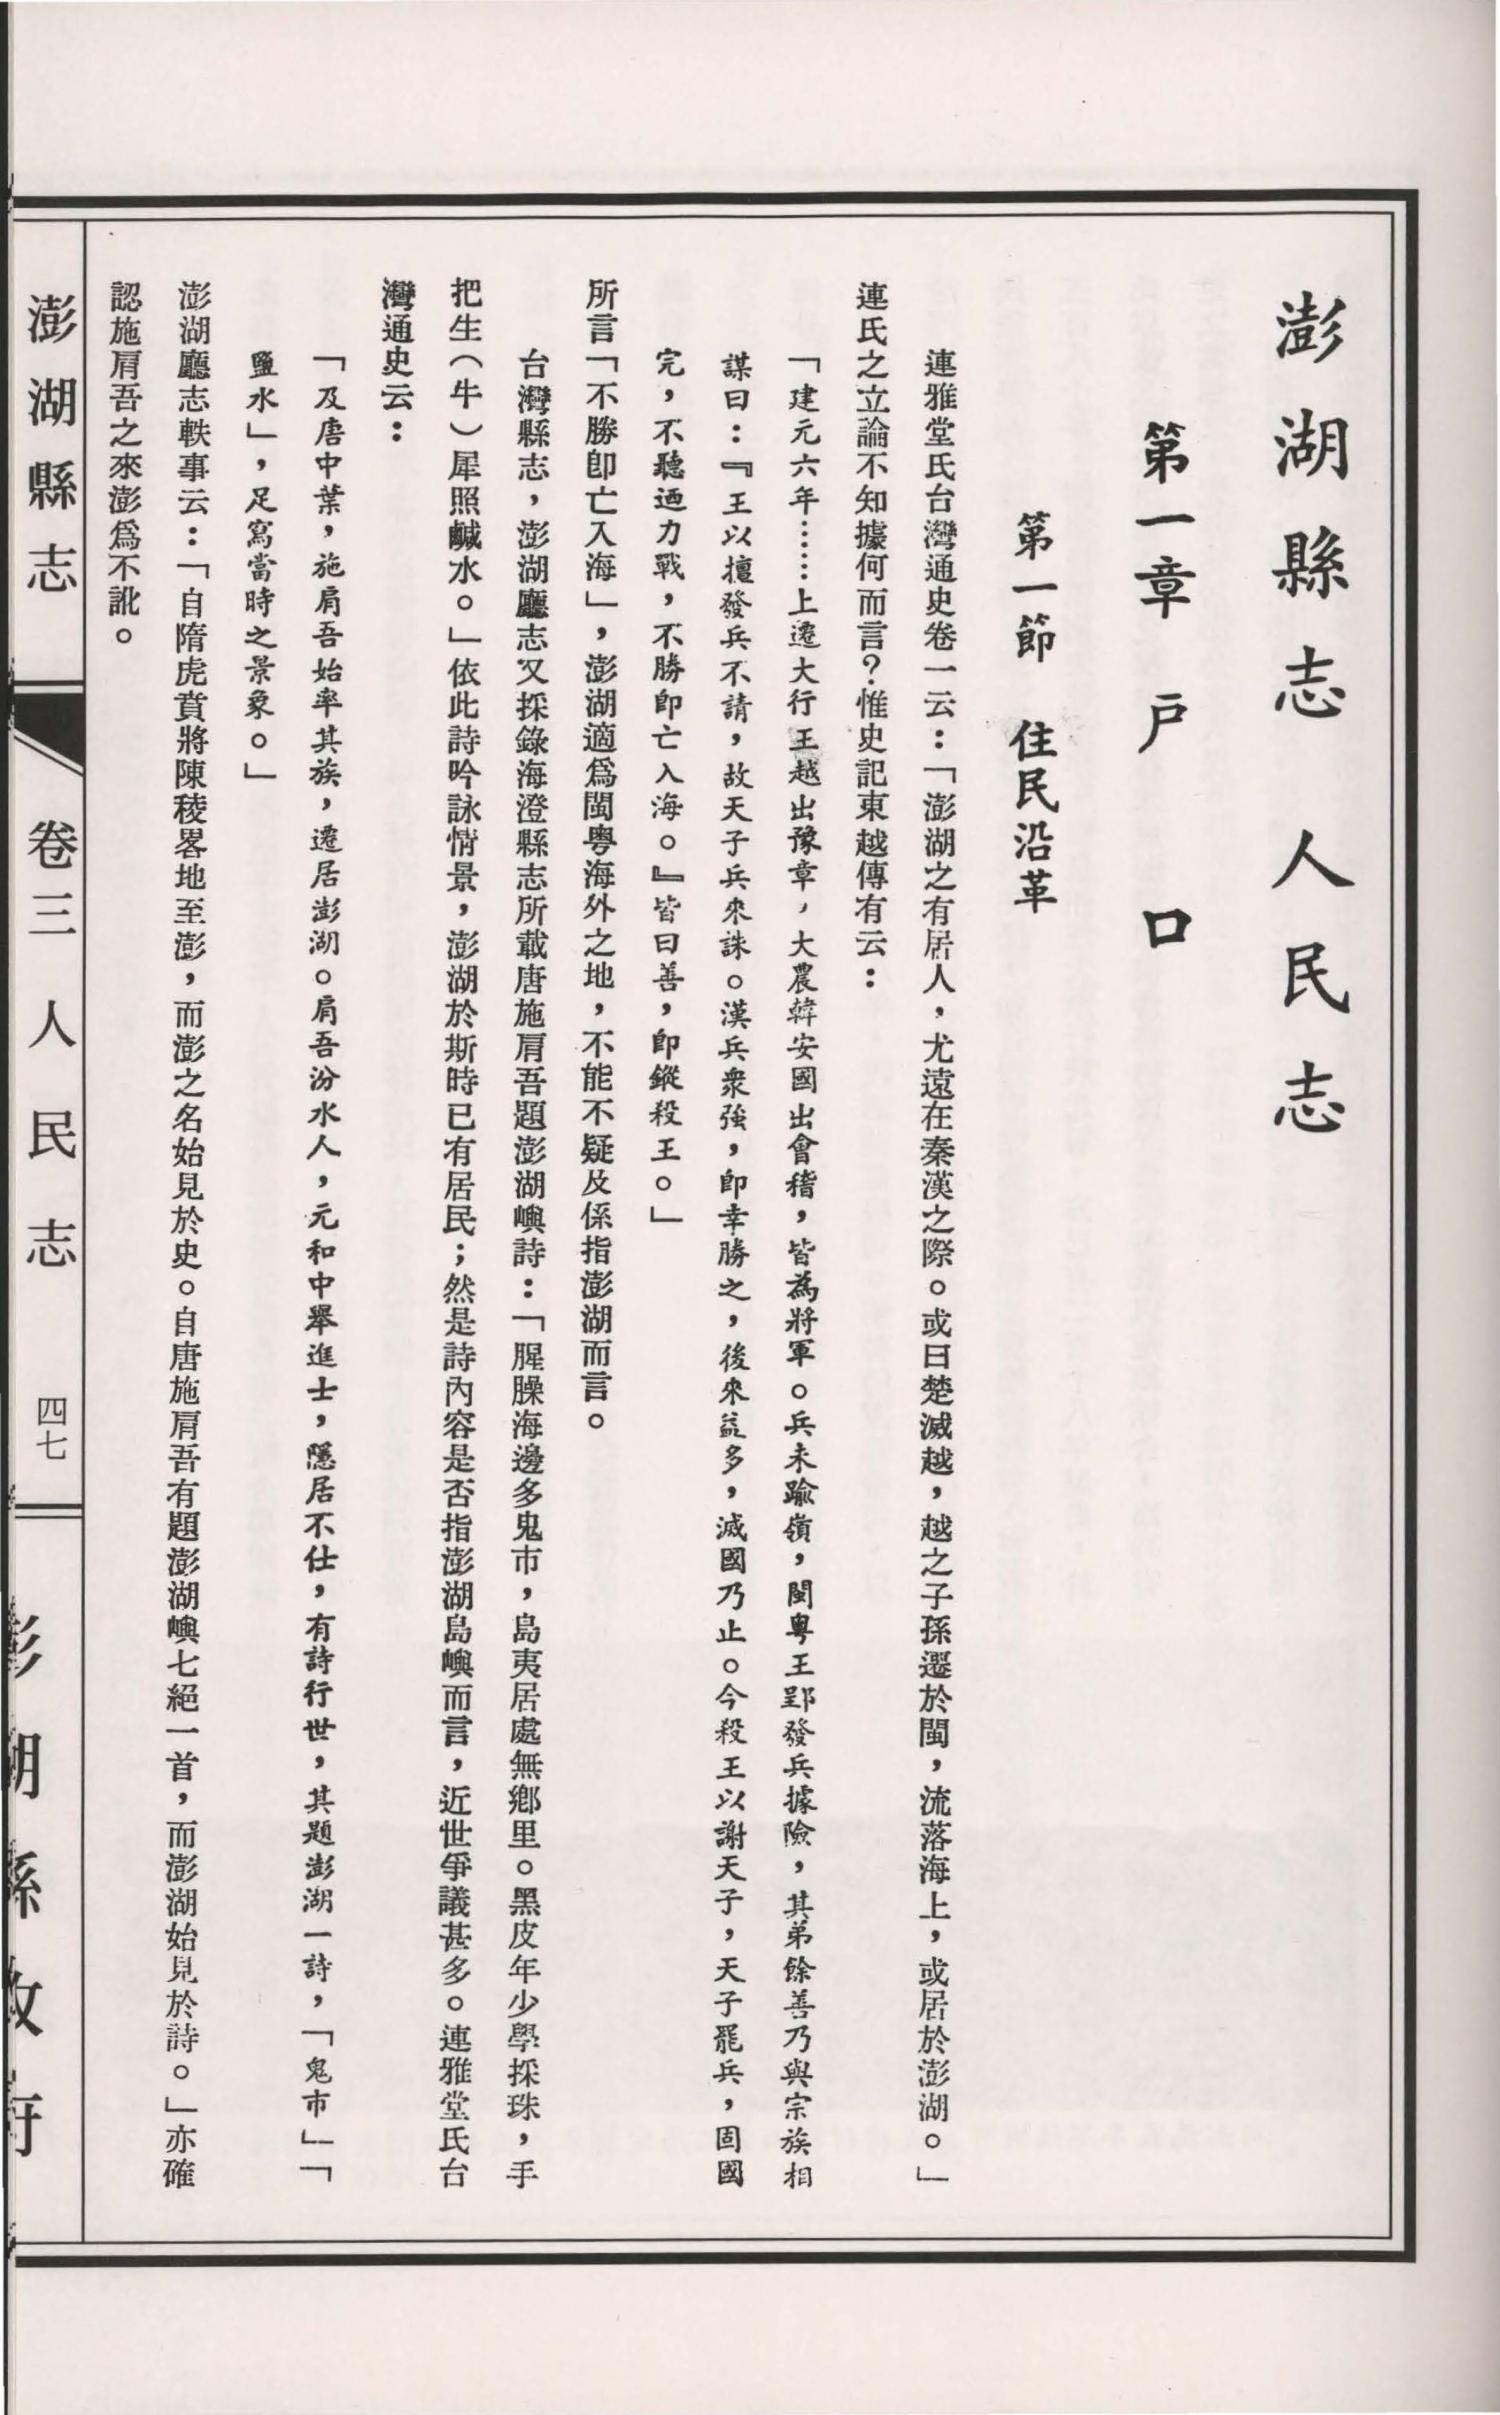 澎湖縣志人民志
第一章戶口
第一節　住民沿革
連雅堂氏台灣通史卷一云：「澎湖之有居人，尤遠在秦漢之際。或曰楚滅越，越之子孫遷於閩，流落海上，或居於澎湖。」
連氏之立論不知據何而言？惟史記東越傳有云：
「建元六年……上遷大行王越出豫章，大農韓安國出會稽，皆為將軍。兵未踰嶺，閩粵王郢發兵據險，其弟餘善乃與宗族相
謀曰：『王以擅發兵不請，故天子兵來誅。漢兵衆強，卽幸勝之，後來益多，滅國乃止。今殺王以謝天子，天子罷兵，固國
完，不聽迺力戰，不勝卽亡入海。』皆曰善，卽鏦殺王。」
所言「不勝卽亡入海」，澎湖適爲閩粵海外之地，不能不疑及係指澎湖而言。
台灣縣志，澎湖廳志又採錄海澄縣志所載唐施肩吾題澎湖嶼詩：「腥臊海邊多鬼市，島夷居處無鄉里。黑皮年少學採珠，手
把生（牛）犀照鹹水。」依此詩吟詠情景，澎湖於斯時已有居民；然是詩內容是否指澎湖島嶼而言，近世爭議甚多。連雅堂氏台
灣通史云：
「及唐中葉，施肩吾始率其族，遷居澎湖。肩吾汾水人，元和中舉進士，隱居不仕，有詩行世，其題澎湖一詩，「鬼市」「
鹽水」，足寫當時之景象。」
澎湖廳志軼事云：「自隋虎賁將陳稜畧地至澎，而澎之名始見於史。自唐施肩吾有題澎湖嶼七絕一首，而澎湖始見於詩。」亦確
認施肩吾之來澎爲不訛。
澎湖縣志
卷三人民志
四七
澎湖縣政府